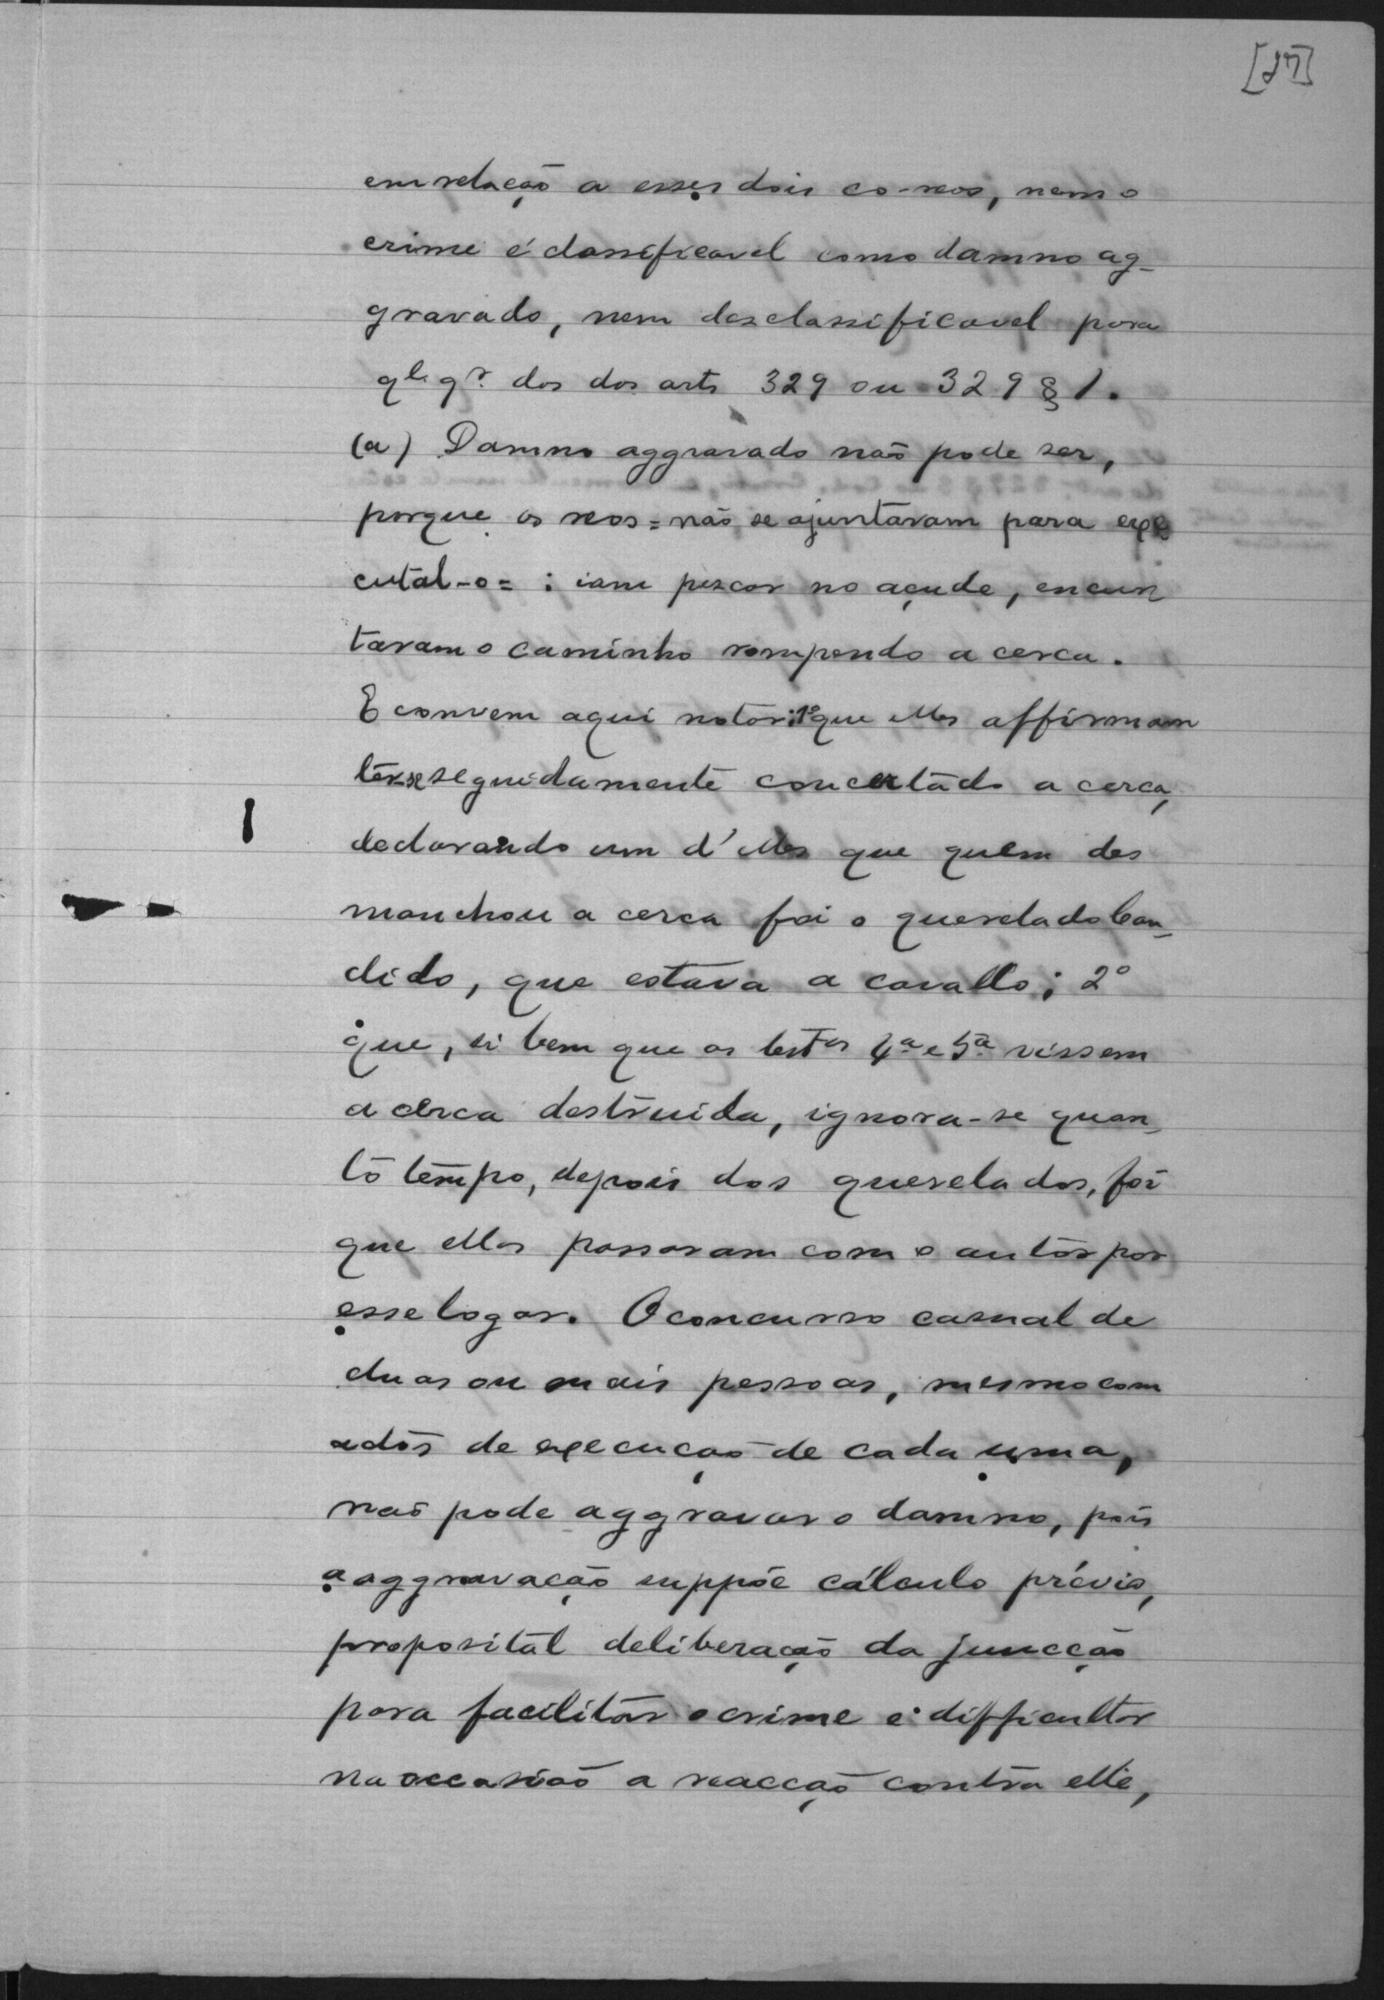 [27]
em relação a esses dois co-reos, nem o
crime é classificavel como damno ag-
gravado, nem desclassificavel para
ql.qr. dos dos arts 329 ou 329 § 1.
(a) Damno aggravado não pode ser,
porque os reos = não se ajuntaram para exe
cutal-o = : iam pescar no açude, encur
taram o caminho rompendo a cerca.
E convem aqui notar: 1º que elles affirmam
ter seguidamente concertado a cerca,
declarando um d'elles que quem des
manchou a cerca foi o querelado Can-
dido, que estava a cavallo; 2º
que, si bem que as testas 4ª e 5ª vissem
a cerca destruida, ignora-se quan-
to tempo, depois dos querelados, foi
que elles passaram com o autor por
esse logar. O concurso casual de
duas ou mais pessoas, mesmo com
actos de execução de cada uma,
não pode aggravar o damno, pois
a aggravação suppõe cálculo prévio,
proposital deliberação da juncção
para facilitar o crime e difficultar
na occasião a reacção contra elle,